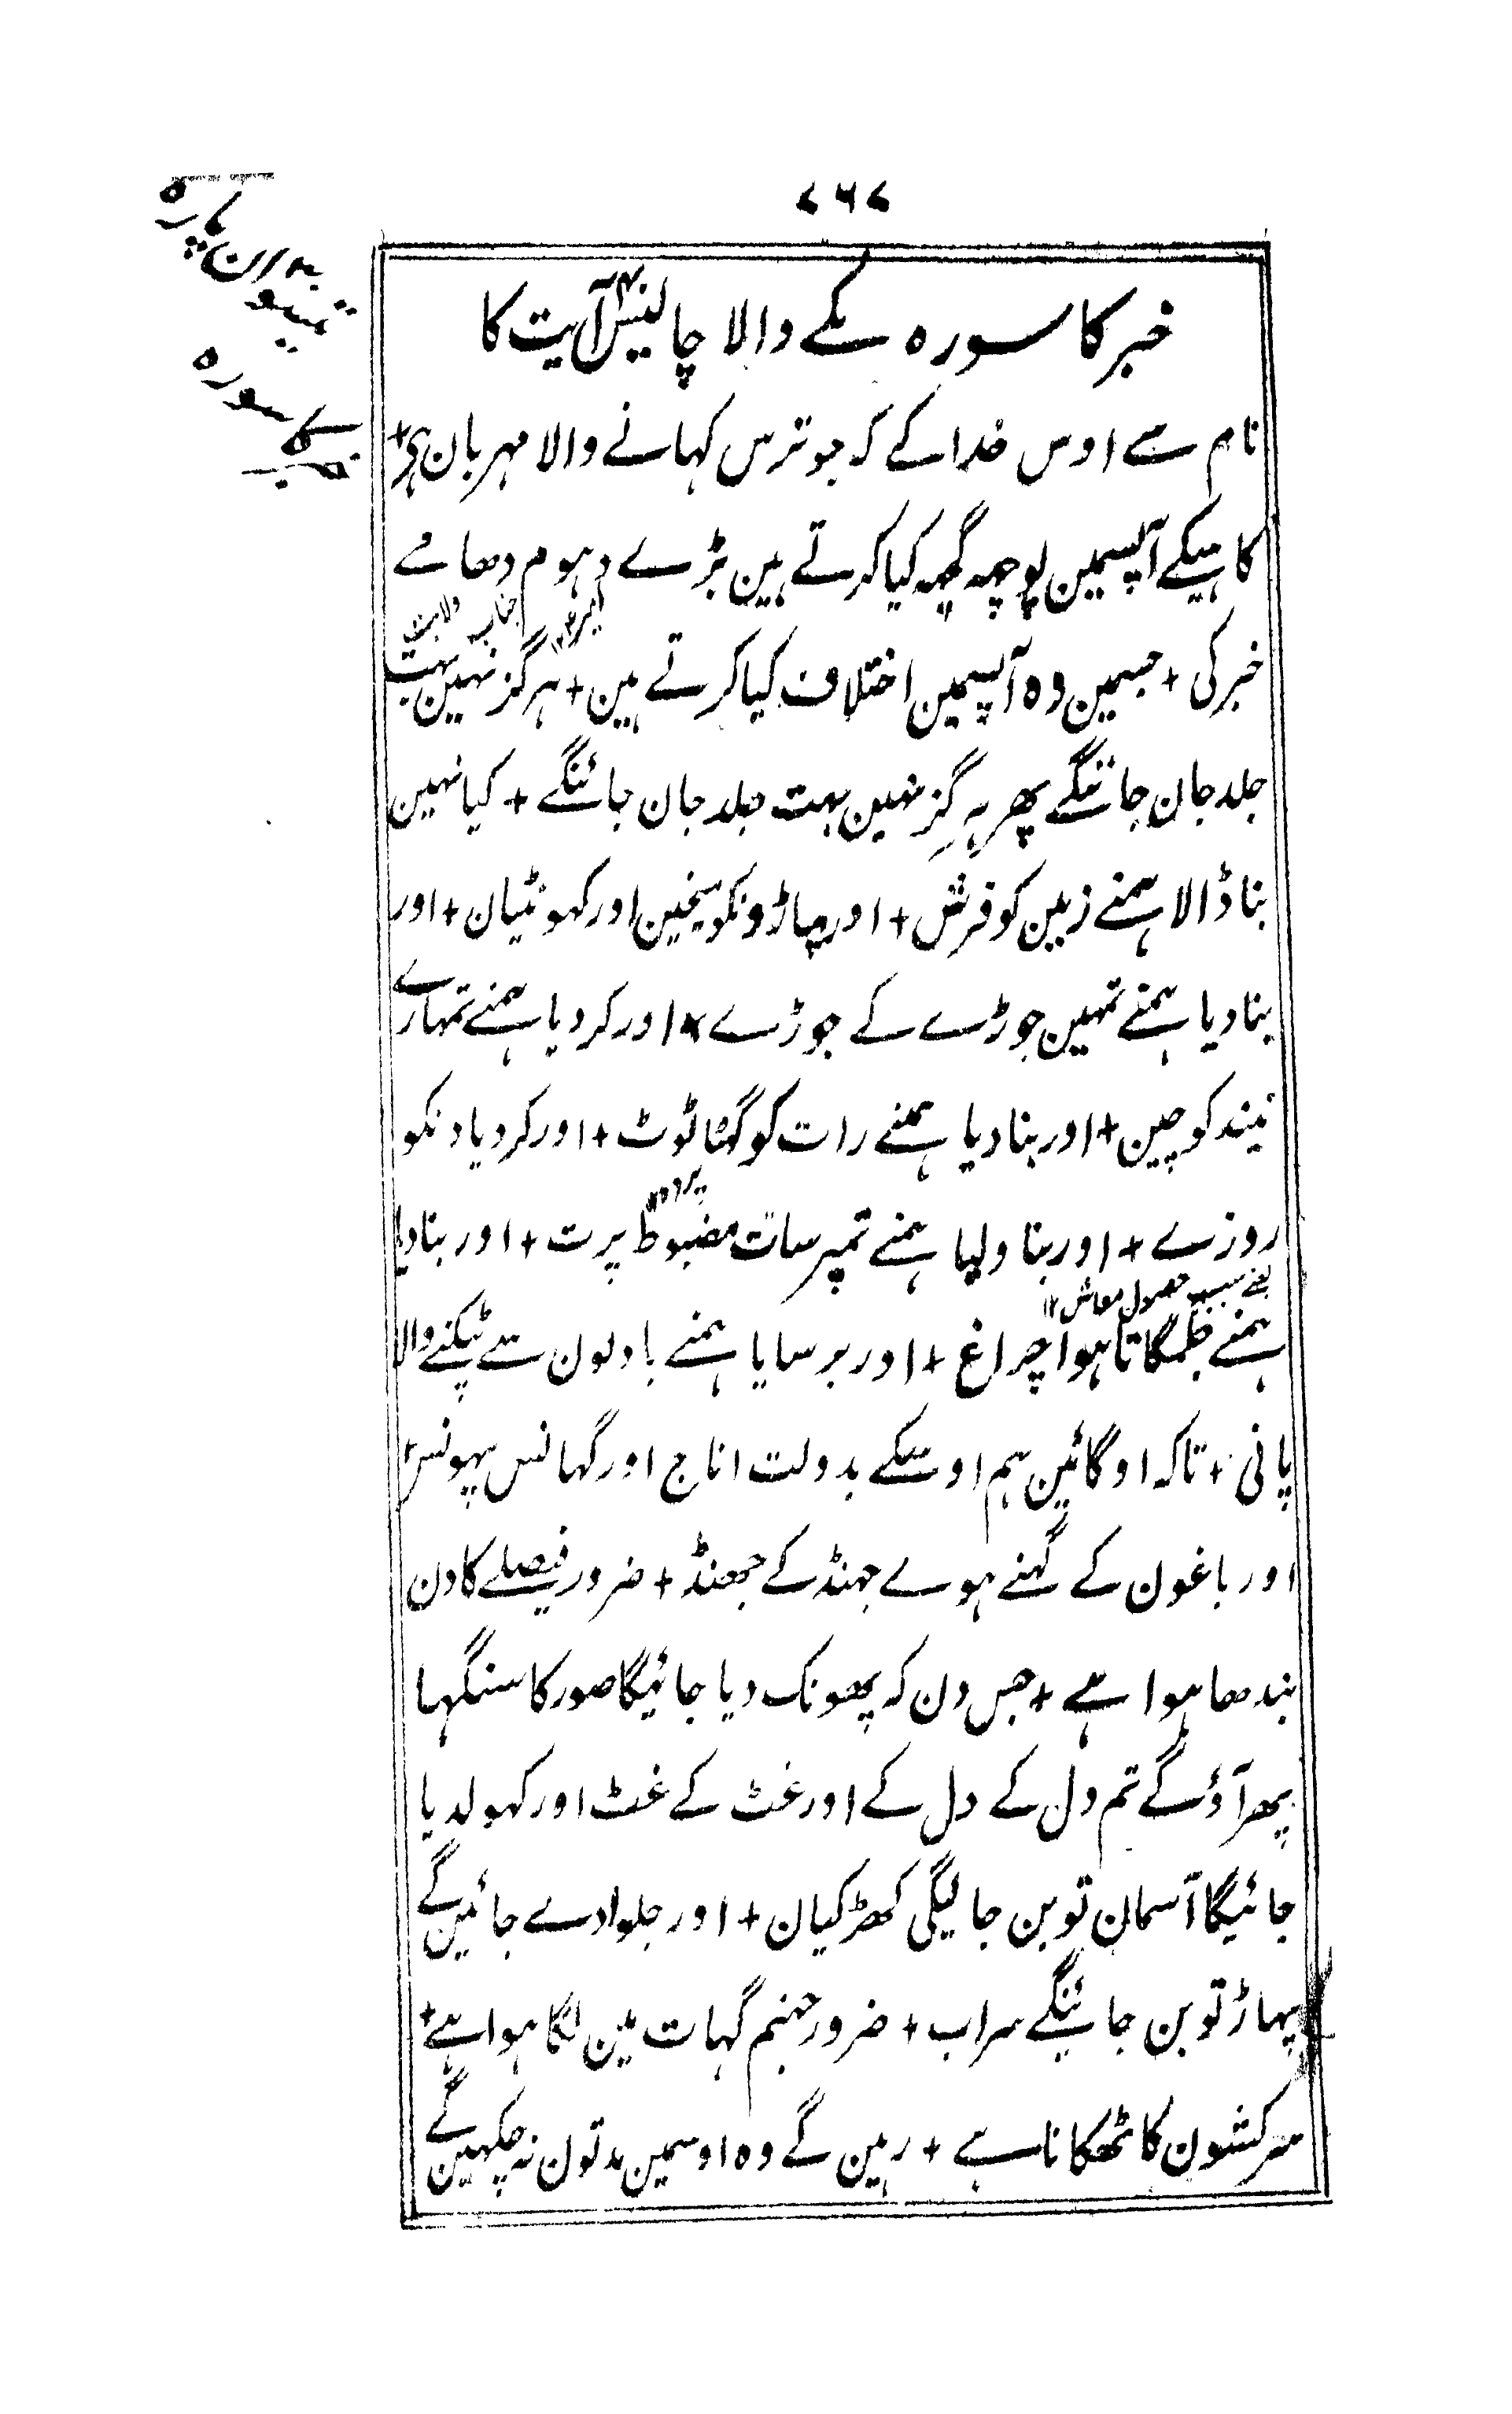 ۷۶۷
تیسوان پارہ
خبر کا سورہ
خبر کا سورہ مکے والا چالیس آیت کا
نام سے اوس خدا کے کہ جو ترس کہانے والا مہربان ہی +
کاہیکے آپسمین پوچھہ گچھہ کیا کرتے ہین بڑے دہوم دھامے
خبر کی + جسمین وہ آپسمین اختلاف کیا کرتے ہین + ہرگز نہین بہت
جلد جان جائنگے پھر ہرگز نہین بہت جلد جان جائنگے + کیا نہین
بنا ڈالا ہمنے زمین کو فرش + اور پہاڑونکو میخین اور کہونٹیان + اور
بنا دیا ہمنے تمہین جوڑے کے جوڑے + اور کر دیا ہمنے تمہارے
نیند کو چین + اور بنا دیا ہمنے رات کو گھٹا ٹوٹ + اور کر دیا دنکو
پردہ
روزے + اور بنا دیا ہمنے تمپر سات مضبوط پرت + اور بنا دیا
یعنے سبب حصول معاش ۱۲
ہمنے جگمگاتا ہوا چراغ + اور برسایا ہمنے بادلون سے ٹپکنے والا
پانی + تاکہ اوگائین ہم اوسکے بدولت اناج اور گہانس پہونس +
اور باغون کے گہنے ہوے جہنڈ کے جھنڈ + ضرور فیصلے کا دن
بندھا ہوا ہے + جس دن کہ پھونک دیا جائیگا صور کا سنگہا
پھر آؤگے تم دل کے دل کے اور غٹ کے غٹ اور کہولدیا
جائیگا آسمان تو بن جائیگی کھڑکیان + اور جلوا دے جائین گے
پہاڑ تو بن جائینگے سراب + ضرور جہنم گہات مین لگا ہوا ہے +
سرکشون کا ٹھکانا ہے + رہین گے وہ اوسمین مدتون نہ چکہین گے